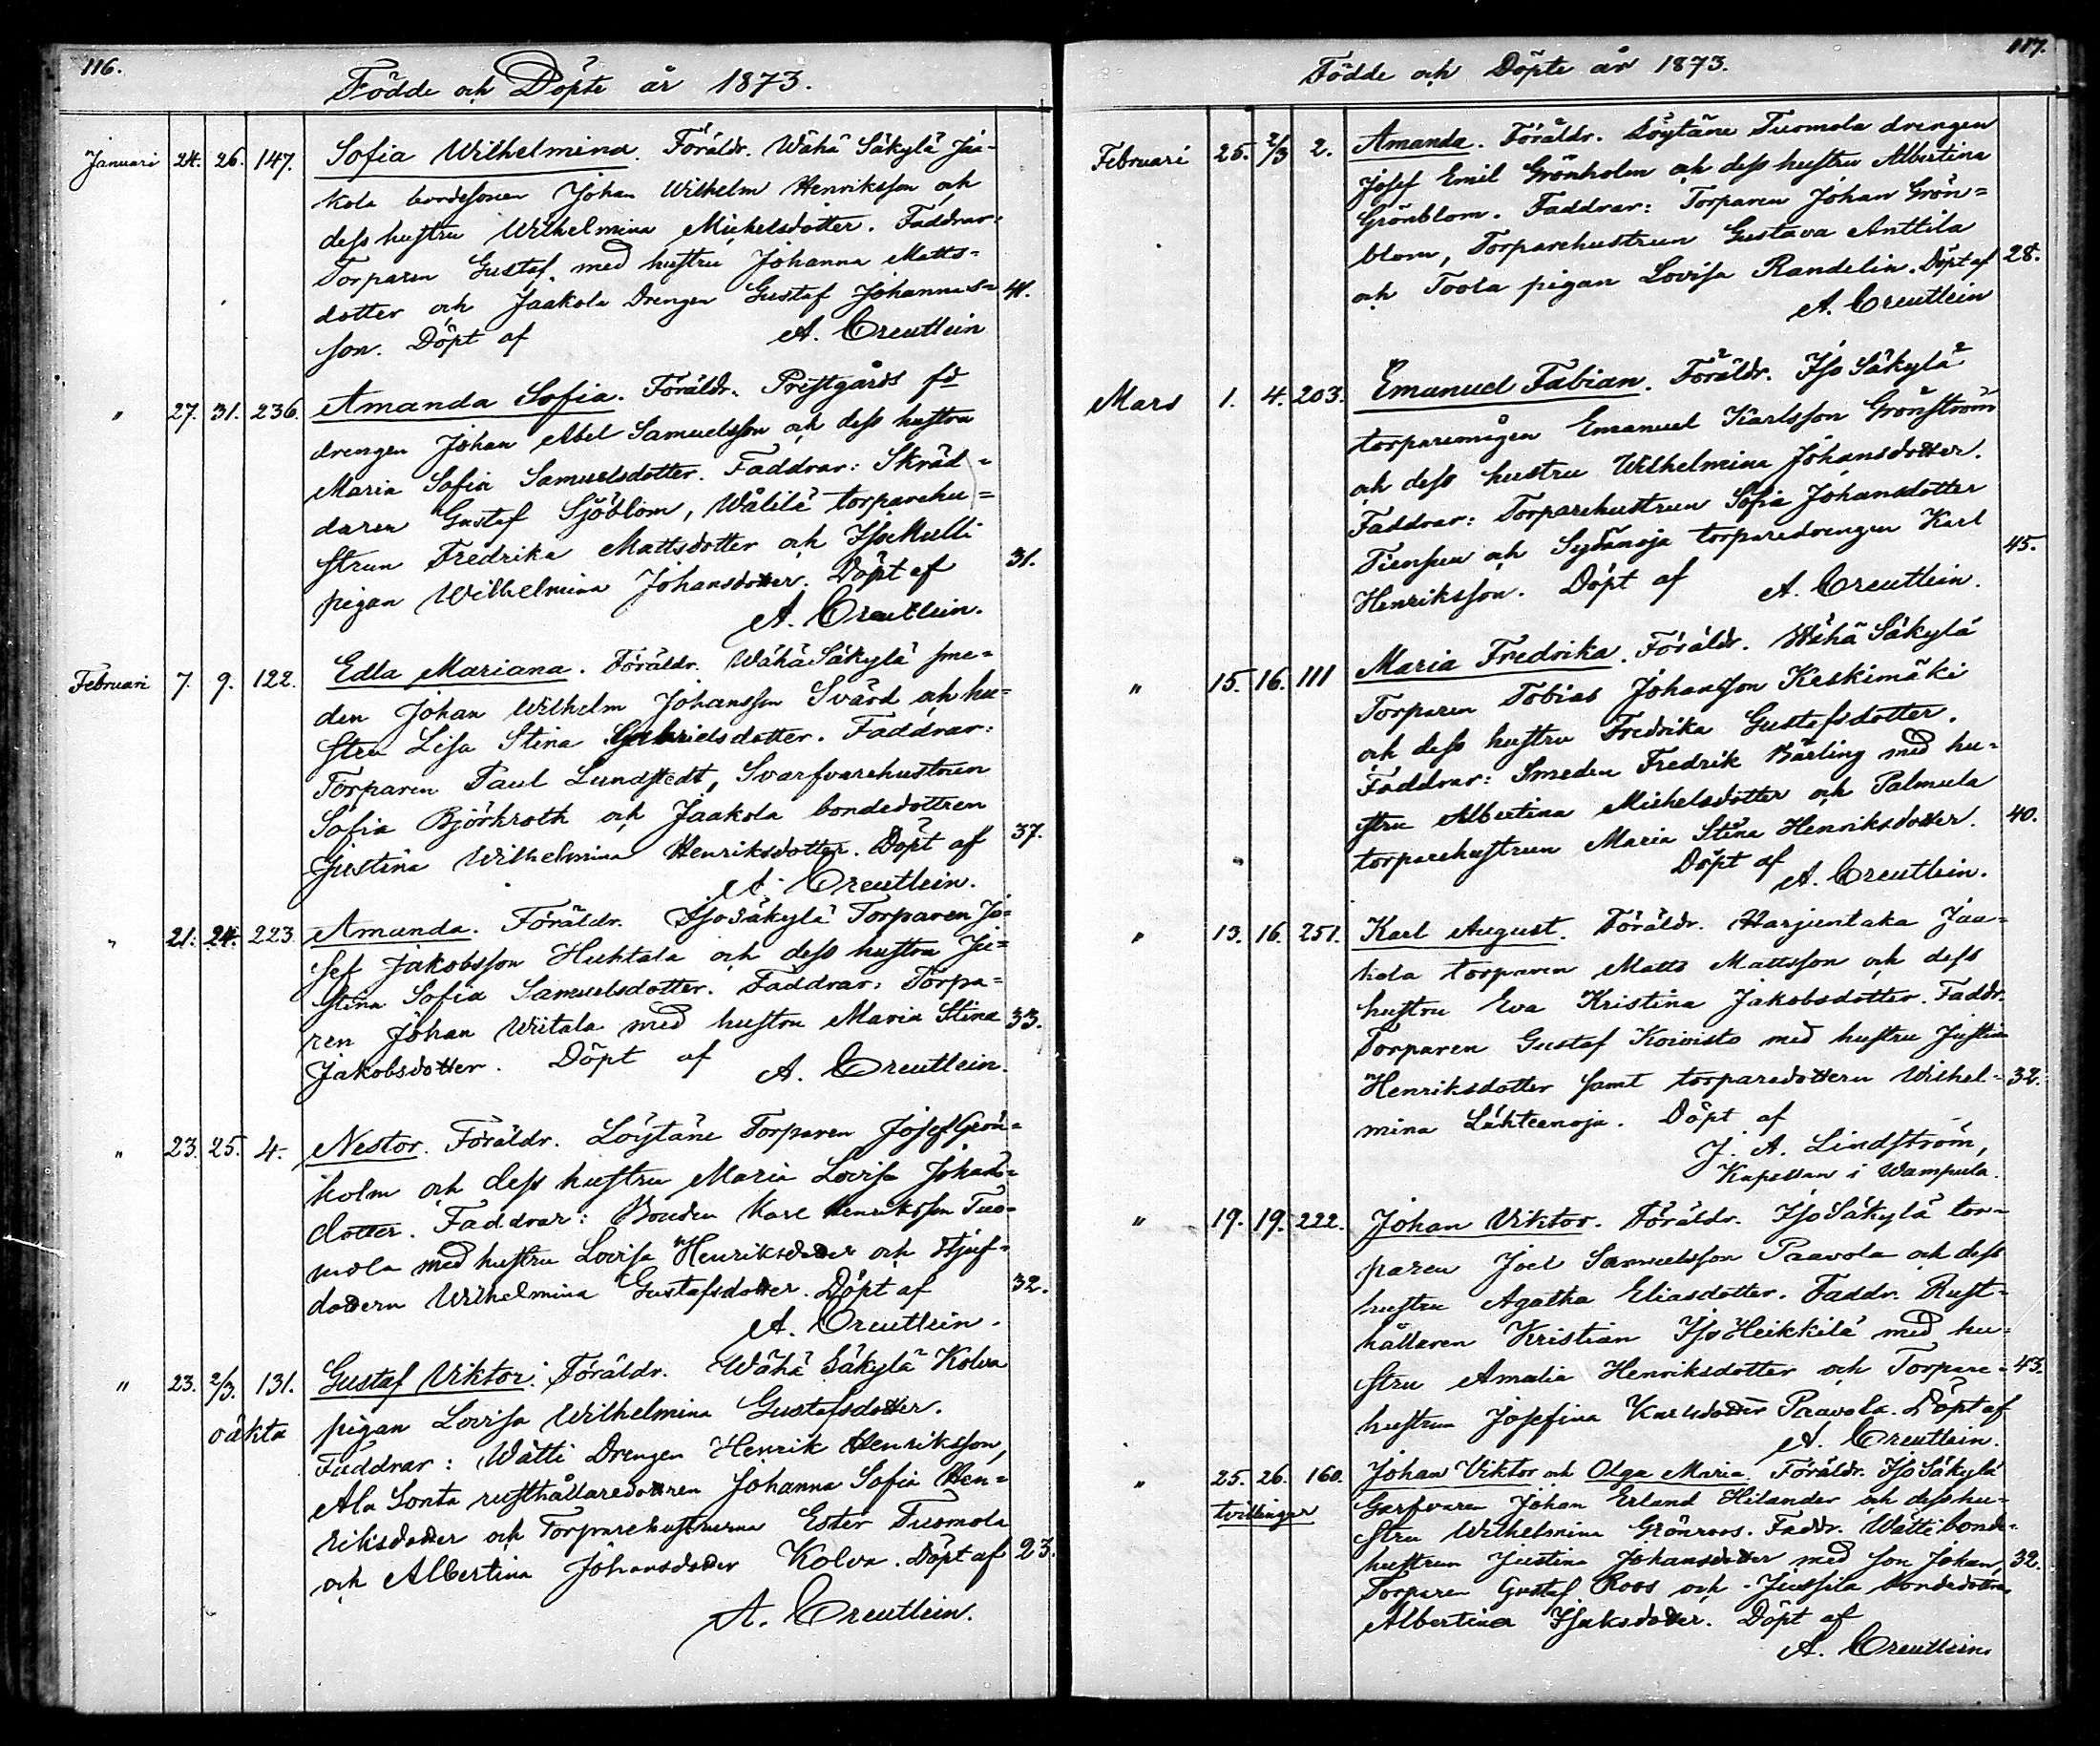 116.
Födde och Döpte år 1873.
Januari 24. 26. 147. Sofia Wilhelmina. Föräldr. Wähä Säkylä Jaa-
kola bondesonen Johan Wilhelm Henriksson och
dess hustru Wilhelmina Michelsdotter. Faddrar:
Torparen Gustaf med hustru Johanna Matts-
dotter och Jaakola Drengen Gustaf Johannes- 41.
son. Döpt af A. Creutlein
" 27. 31. 236. Amanda Sofia. Föräldr. Prestgårds fd
drengen Johan Abel Samuelsson och dess hustru
Maria Sofia Samuelsdotter. Faddrar: Skräd-
daren Gustaf Sjöblom, Wälilä torparehu-
strun Fredrika Mattsdotter och IsoMulli
pigan Wilhelmina Johansdotter. Döpt af 31.
A. Creutlein.
Februari 7. 9. 122. Edla Mariana. Föräldr. WähäSäkylä sme-
den Johan Wilhelm Johansson Svärd och hu-
stru Lisa Stina Gabrielsdotter. Faddrar:
Torparen Paul Lundstedt, Svarfvarehustrun
Sofia Björkroth och Jaakola bondedottren
Justina Wilhelmina Henriksdotter. Döpt af 37.
A. Creutlein.
" 21. 24. 223. Amanda. Föräldr. IsoSäkylä Torparen Jo-
sef Jakobsson Huhtala och dess hustru Ju-
stina Sofia Samuelsdotter. Faddrar: Torpa-
ren Johan Wiitala med hustru Maria Stina 33.
Jakobsdotter. Döpt af A. Creutlein.
" 23. 25. 4. Nestor. Föräldr. Löytäne Torparen Josef Grön-
holm och dess hustru Maria Lovisa Johans-
dotter. Faddrar: Bonden Karl Henriksson Tuo-
mola med hustru Lovisa Henriksdotter och Stjuf-
dottern Wilhelmina Gustafsdotter. Döpt af 32.
A. Creutlein.
" 23. 2/3. 131. Gustaf Viktor. Föräldr. Wähä Säkylä Kolva
oäkta pigan Lovisa Wilhelmina Gustafsdotter.
Faddrar: Wätti Drengen Henrik Henriksson,
Ala Sonta rusthållaredottren Johanna Sofia Hen-
riksdotter och Torparehustrurna Ester Tuomola
och Albertina Johansdotter Kolva. Döpt af 23.
A. Creutlein.
117.
Födde och Döpte år 1873.
Februari 25. 2/3 2. Amanda. Föräldr. Löytäne Tuomola drengen
Josef Emil Grönholm och dess hustru Albertina
Grönblom. Faddrar: Torparen Johan Grön=
blom, Torparehustrun Gustava Anttila
och Toola pigan Lovisa Randelin. Döpt af 28.
A. Creutlein
Mars 1. 4. 203. Emanuel Fabian. Föräldr. Iso Säkylä
torparemågen Emanuel Karlsson Grönström
och dess hustru Wilhelmina Johansdotter.
Faddrar: Torparehustrun Sofia Johansdotter
och Sydänoja torparedrengen Karl 45.
Henriksson. Döpt af A. Creutlein.
" 15. 16. 111 Maria Fredrika. Föräldr. Wähä Säkylä
Torparen Tobias Johansson Keskimäki
och dess hustru Fredrika Gustafsdotter.
Faddrar: Smeden Fredrik Bärling med hu-
stru Albertina Michelsdotter och Palmula
torparehustrun Maria Stina Henriksdotter. 40.
Döpt af A. Creutlein.
" 13. 16. 251. Karl August. Föräldr. Harjuntaka Jaa-
kola torparen Matts Mattsson och dess
hustru Eva Kristina Jakobsdotter. Faddr.
Torparen Gustaf Koivisto med hustru Justina
Henriksdotter samt torparedottern Wilhel- 32.
mina Lähteenoja. Döpt af
J. A. Lindström,
Kapellan i Wampula.
" 19. 19. 222. Johan Viktor. Föräldr. IsoSäkylä tor-
paren Joel Samuelsson Paavola och dess
hustru Agatha Eliasdotter. Faddr. Rust-
hållaren Kristian IsoHeikkilä med hu-
stru Amalia Henriksdotter och Torpare- 43.
hustrun Josefina Karlsdotter Paavola. Döpt af
A. Creutlein.
" 25. 26. 160. Johan Viktor och Olga Maria. Föräldr. Iso Säkylä
tvillingar Garfvaren Johan Erland Hilander och dess hu-
stru Wilhelmina Grönroos. Faddr. Wätti bonde-
hustrun Justina Johansdotter med son Johan, 32.
Torparen Gustaf Roos och Jussila bondedottren
Albertina Isaksdotter. Döpt af
A. Creutlein